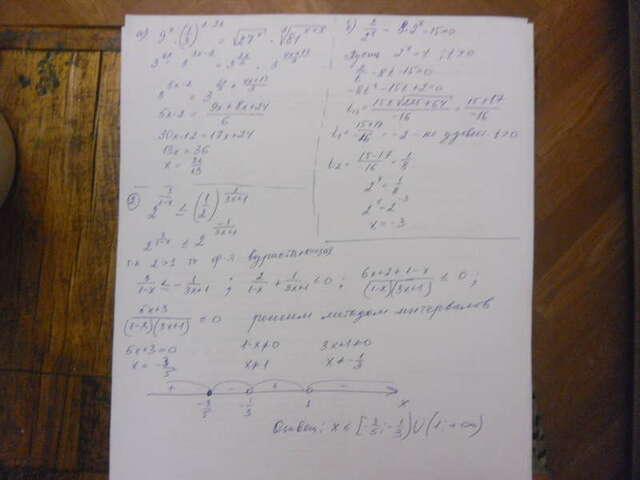 а) 9^x · (1/3)^{2-3x} = √(27^x) · ∛(81^{x+3})
3^{5x-2} = 3^{3x/2 + (4x+12)/3}
5x-2 = (9x+8x+24)/6
30x-12 = 17x+24
13x = 36
x = 36/13
б) 2/2^x - 8·2^x - 15 = 0
Пусть 2^x = t ; t > 0
2/t - 8t - 15 = 0
-8t² - 15t + 2 = 0
t₁,₂ = (15 ± √(225+64))/-16 = (15 ± 17)/-16
t₁ = (15+17)/-16 = -2 - не удовл. t>0
t₂ = (15-17)/-16 = 1/8
2^x = 1/8
2^x = 2^{-3}
x = -3
②
2^{2/(1-x)} ≤ (1/2)^{1/(3x+1)}
2^{2/(1-x)} ≤ 2^{-1/(3x+1)}
т.к 2>1 то ф-я возрастающая
2/(1-x) ≤ - 1/(3x+1) ; 2/(1-x) + 1/(3x+1) ≤ 0 ; (6x+2+1-x)/((1-x)(3x+1)) ≤ 0 ;
(5x+3)/((1-x)(3x+1)) ≤ 0 решаем методом интервалов
5x+3=0 1-x≠0 3x+1≠0
x = -3/5 x≠1 x≠-1/3
+ - + -
-3/5 -1/3 1 x
Ответ: x ∈ [-3/5; -1/3) ∪ (1; +∞)